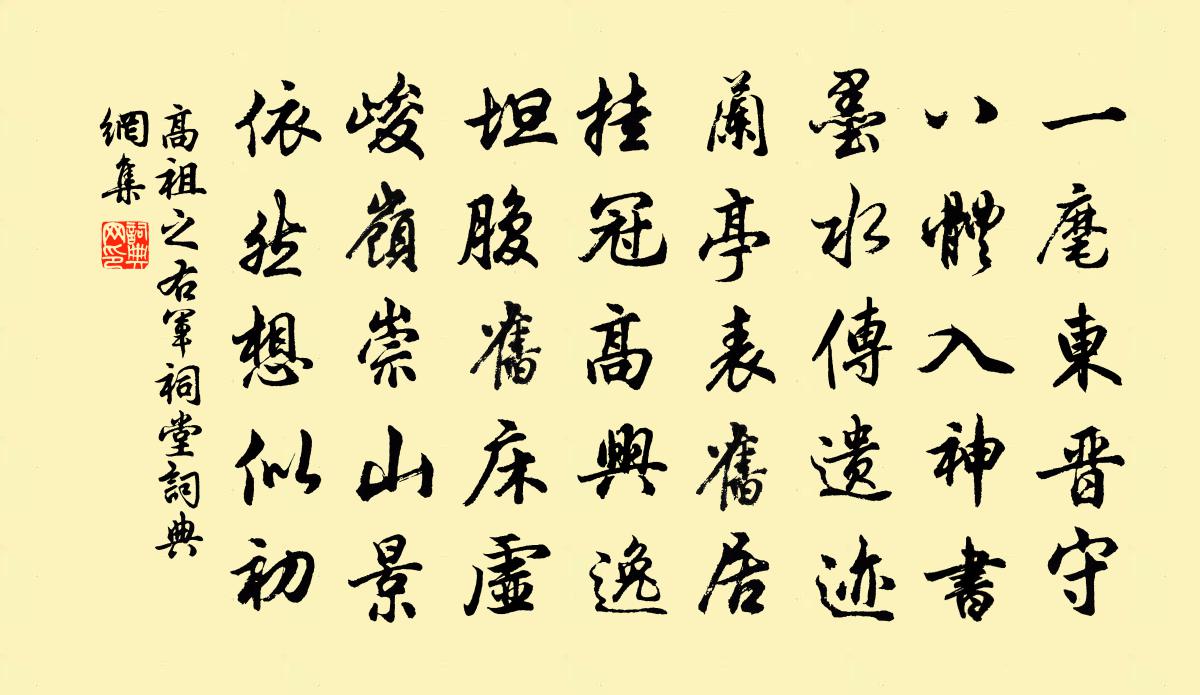 一麾東晋守
八體入神書
墨水傳遺迹
蘭亭表舊居
挂冠高興逸
坦腹舊床虚
峻嶺崇山景
依然想似初
高祖之右軍祠堂詞典
網集
詞典網印